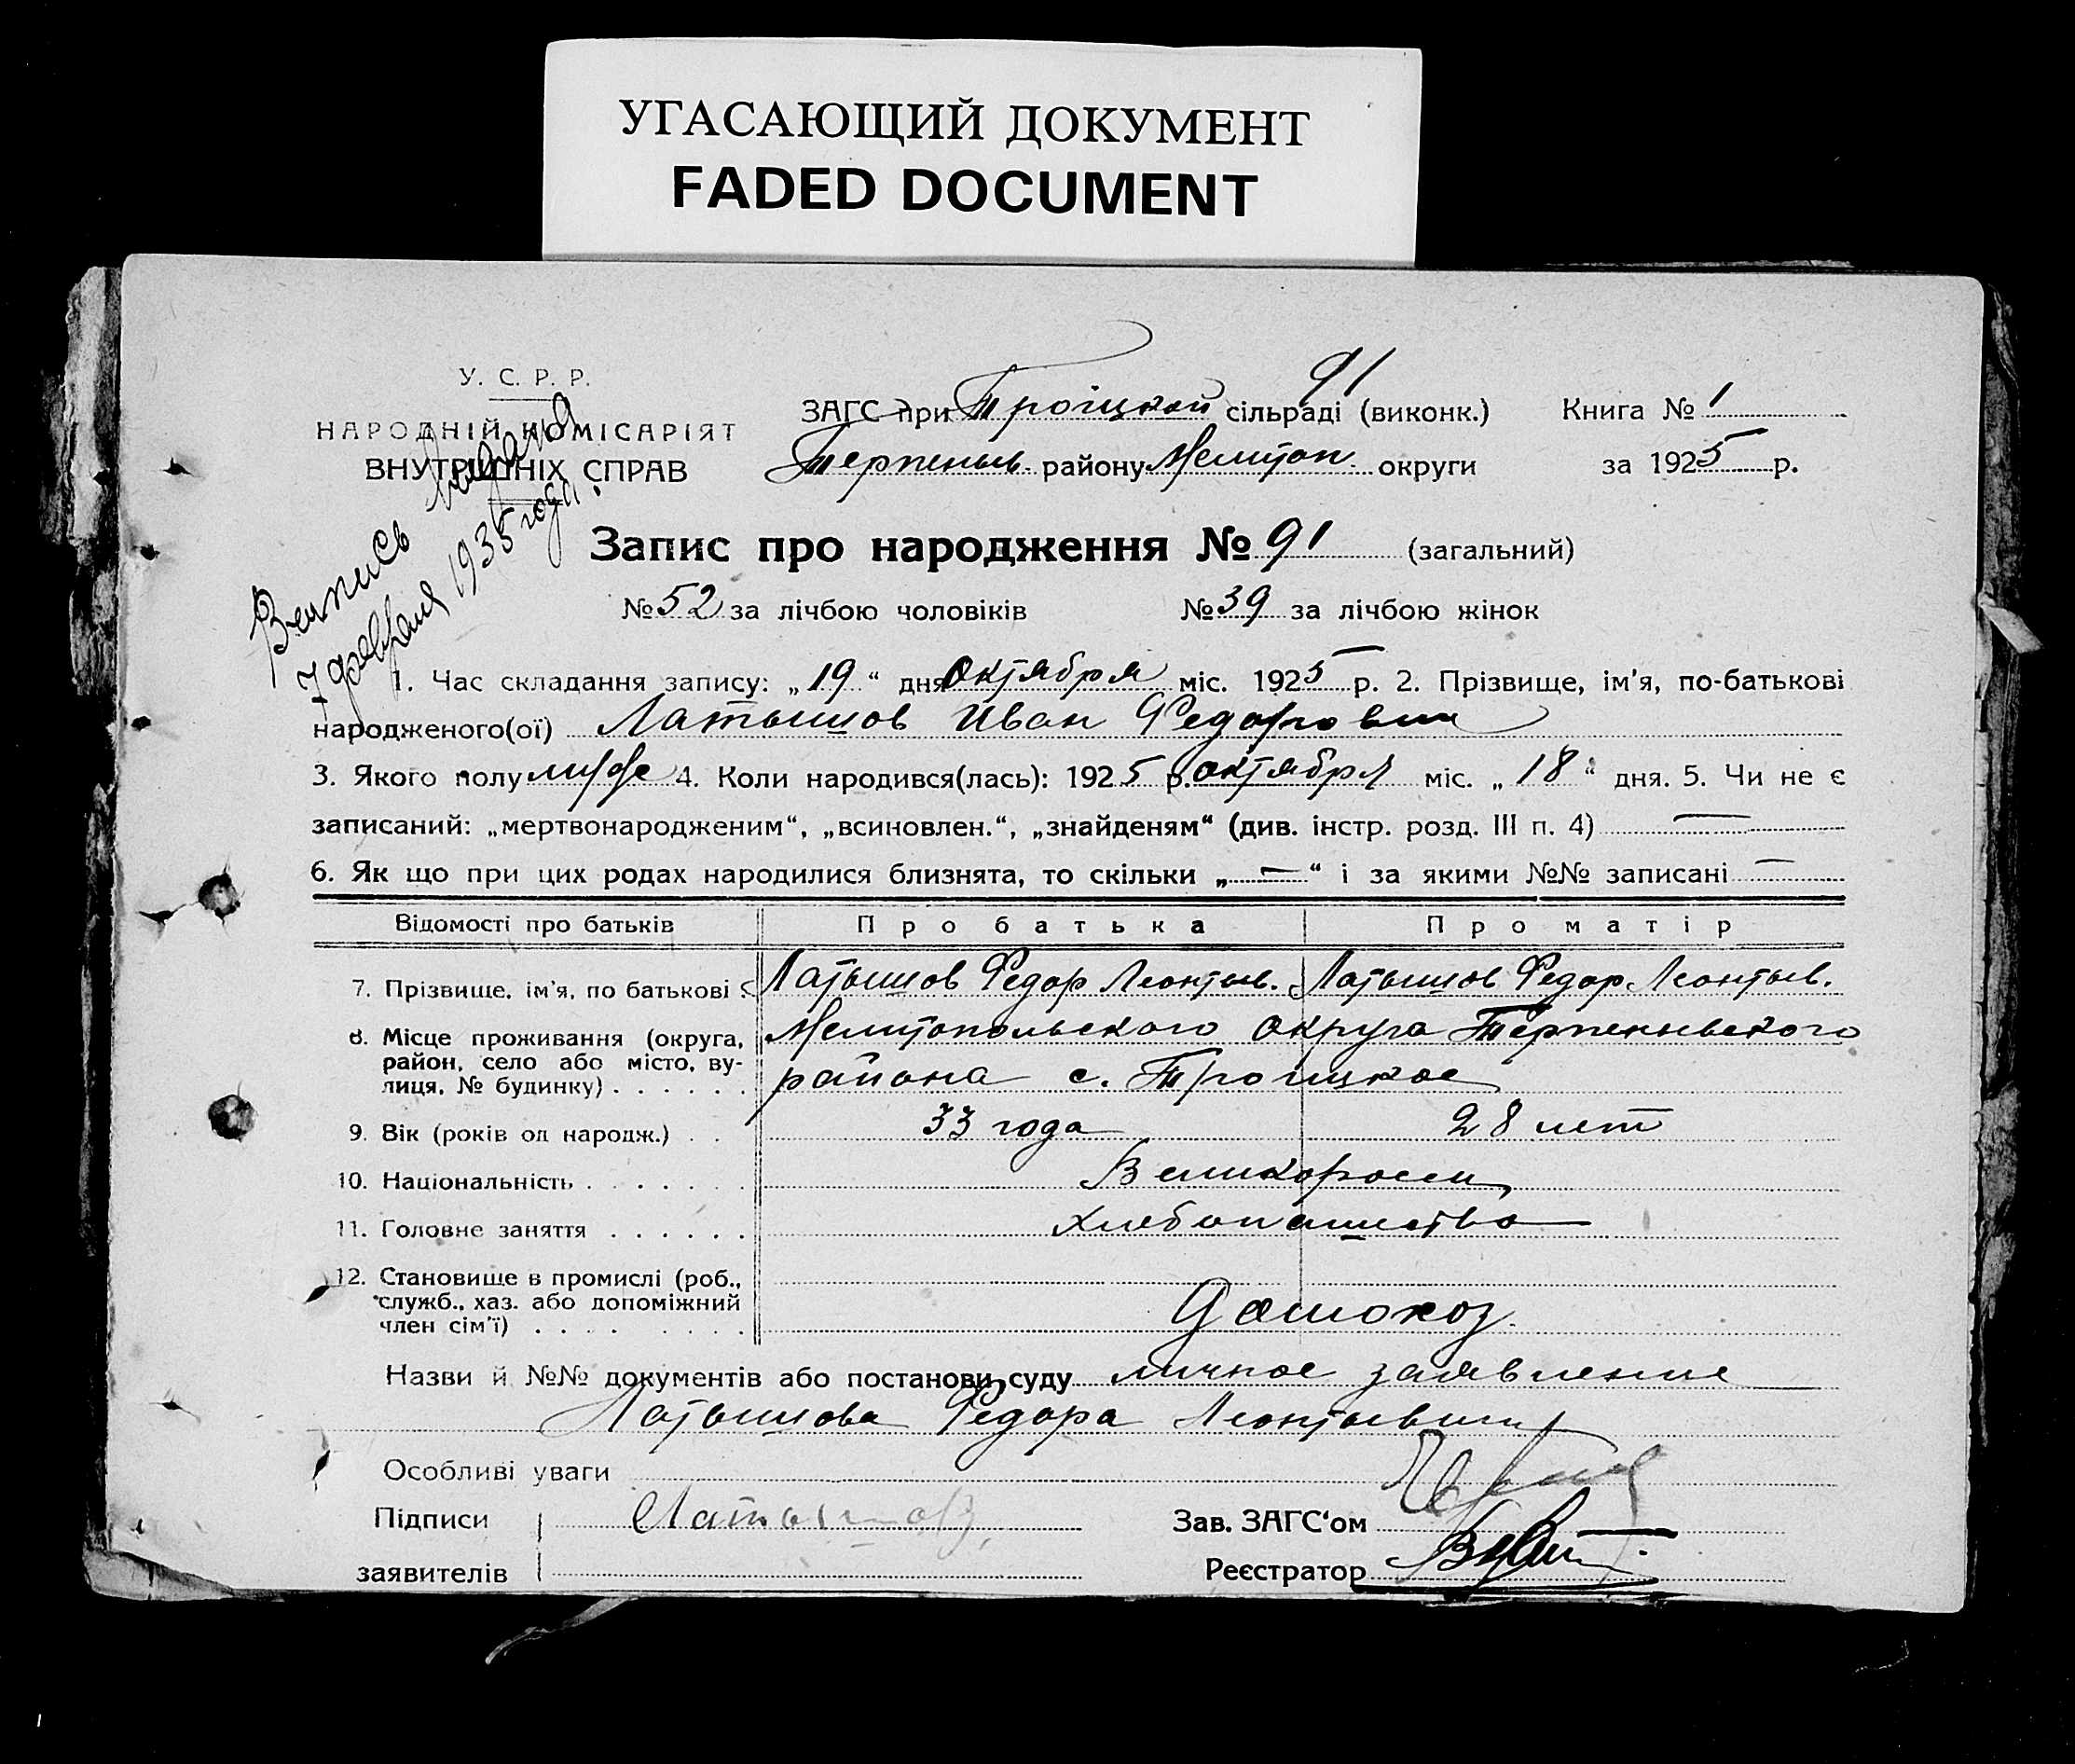 УГАСАЮЩИЙ ДОКУМЕНТ
FADED DOCUMENT
У. С. Р. Р.
НАРОДНІЙ КОМІСАРІЯТ
ВНУТРІШНІХ СПРАВ
Выпись выдана
7 февраля 1935 года.
91
ЗАГС при Троіцкой сільраді (виконк.) Книга № 1
Терпеньев. району Мелитоп. округи за 1925 р.
Запис про народження № 91 (загальний)
№ 52 за лічбою чоловіків № 39 за лічбою жінок
1. Час складання запису: „19“ дня Октября міс. 1925 р. 2. Прізвище, ім'я, по-батькові
народженого(ої) Латышов Иван Федорович
3. Якого полу муж 4. Коли народився(лась): 1925 р. октября міс. „18“ дня. 5. Чи не є
записаний: „мертвонародженим“, „всиновлен.“, „знайденям“ (див. інстр. розд. III п. 4) —
6. Як що при цих родах народилися близнята, то скільки „—“ і за якими №№ записані —
Відомості про батьків Про батька Про матір
7. Прізвище, ім'я, по батькові : Латышов Федор Леонтьев. Латышов Федор Леонтьев.
8. Місце проживання (округа, район, село або місто, вулиця, № будинку) . . . . . . Мелитопольского округа Терпеньевского
района с. Троицкое
9. Вік (років од народж.) . . 33 года 28 лет
10. Національність . . . . . . . Великороссы
11. Головне заняття . . . . . . хлебопашество
12. Становище в промислі (роб., служб., хаз. або допоміжний член сім'ї) . . . .
Назви й №№ документів або постанови суду личное заявление
Латышова Федора Леонтьевича
Особливі уваги
Підписи Латышов
Зав. ЗАГС‘ом
заявителів
Реєстратор